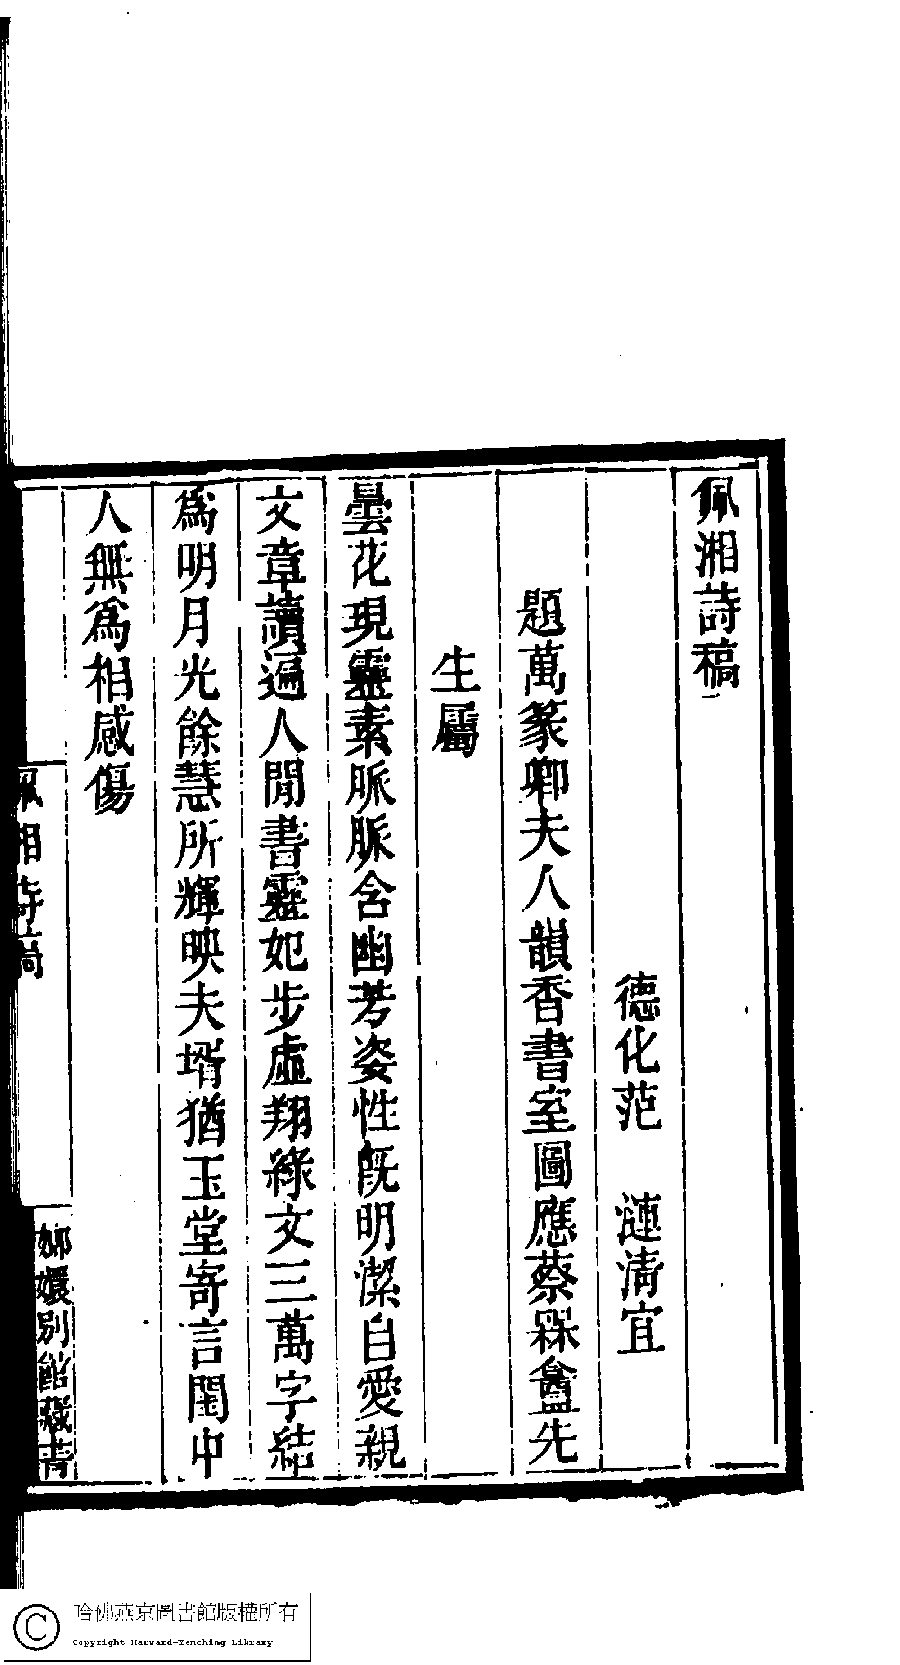 佩湘詩稿
德化范　漣清宜
題萬篆卿夫人韻香書室圖應蔡槑盦先
生屬
曇花現靈素脈脈含幽芳姿性旣明潔自愛親
文章讀遍人閒書靈妃步虛翔綠文三萬字結
爲明月光餘慧所輝映夫壻猶玉堂寄言閨中
人無爲相感傷
佩湘詩稿
嫏嬛別館藏書
哈佛燕京圖書館版權所有
Copyright Harvard-Yenching Library